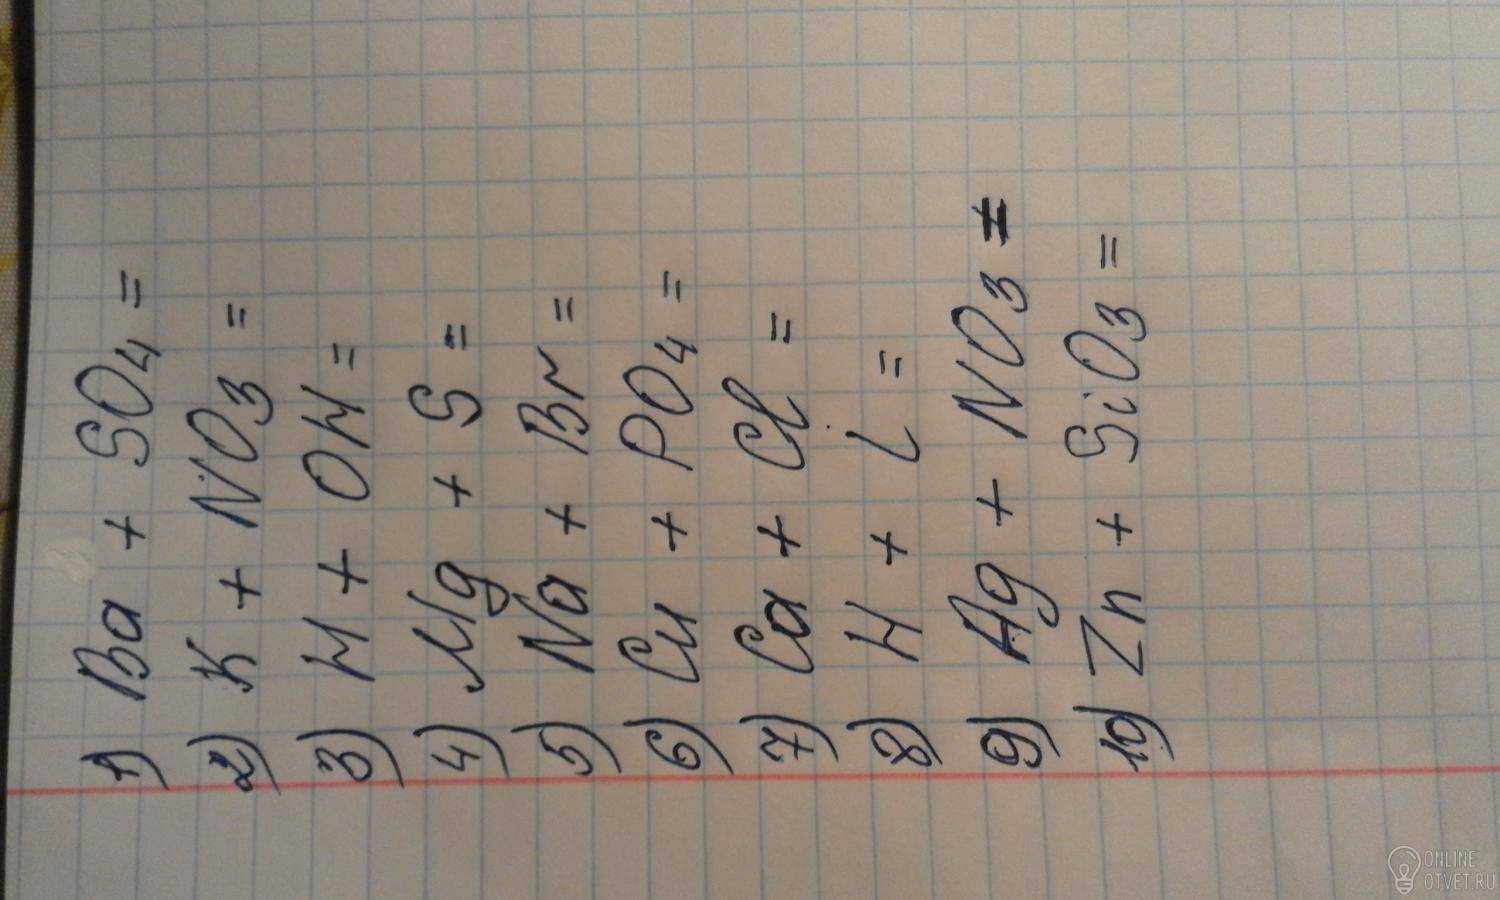 1) Ba + SO4 =
2) K + NO3 =
3) H + OH =
4) Mg + S =
5) Na + Br =
6) Cu + PO4 =
7) Ca + Cl =
8) H + i =
9) Ag + NO3 =
10) Zn + SiO3 =
ONLINE
OTVET.RU